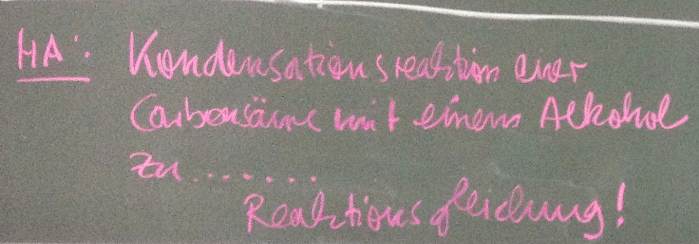 HA: Kondensationsreaktion einer
Carbonsäure mit einem Alkohol
zu.......
Reaktionsgleichung!